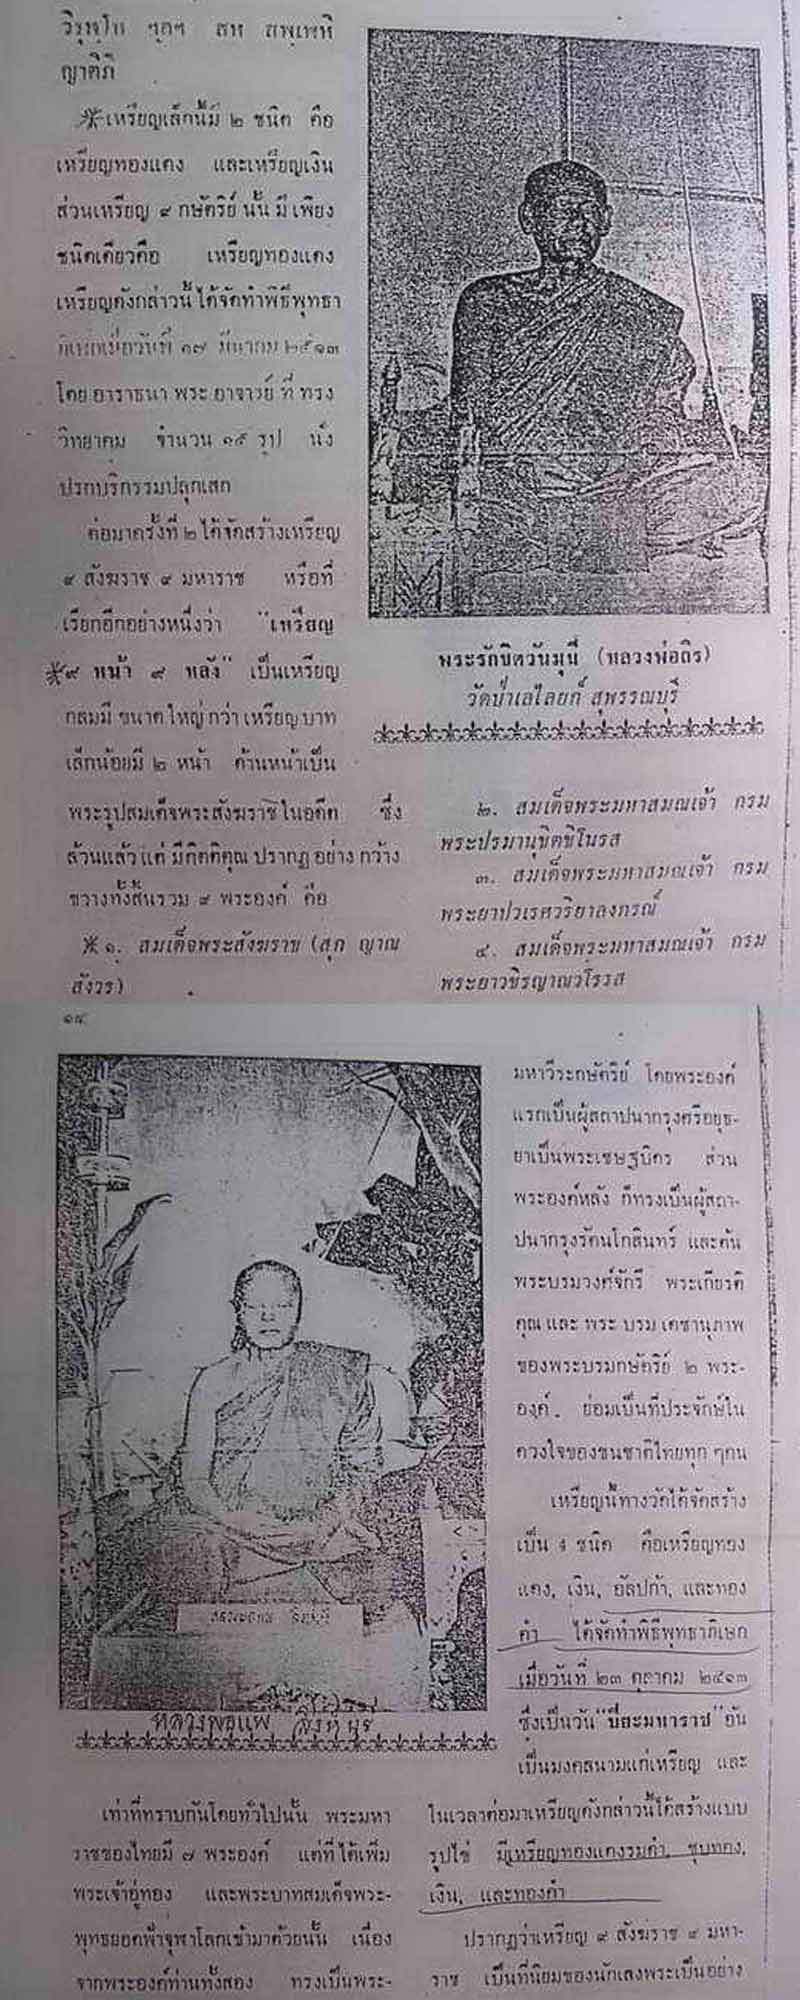 ญาติภิ
*เหรียญเล็กนี้มี ๒ ชนิด คือ
เหรียญทองแดง และเหรียญเงิน
ส่วนเหรียญ ๙ กษัตริย์ นั้น มี เพียง
ชนิดเดียวคือ เหรียญทองแดง
เหรียญดังกล่าวนี้ ได้จัดทำพิธีพุทธา
ภิเษกเมื่อวันที่ ๑๗ มีนาคม ๒๕๑๓
โดย อาราธนา พระ อาจารย์ ที่ ทรง
วิทยาคม จำนวน ๑๙ รูป นั่ง
ปรกบริกรรมปลุกเสก
ต่อมาครั้งที่ ๒ ได้จัดสร้างเหรียญ
๙ สังฆราช ๙ มหาราช หรือที่
เรียกอีกอย่างหนึ่งว่า "เหรียญ
*๙ หน้า ๙ หลัง" เป็นเหรียญ
กลมมี ขนาด ใหญ่ กว่า เหรียญ บาท
เล็กน้อยมี ๒ หน้า ด้านหน้าเป็น
พระรูปสมเด็จพระสังฆราช ในอดีต ซึ่ง
ล้วนแล้ว แต่ มีกิตติคุณ ปรากฏ อย่าง กว้าง
ขวางทั้งสิ้นรวม ๙ พระองค์ คือ
* ๑. สมเด็จพระสังฆราช (สุก ญาณ
สังวร)
พระรักขิตวันมุนี (หลวงพ่อถิร)
วัดป่าเลไลยก์ สุพรรณบุรี
๒. สมเด็จพระมหาสมณเจ้า กรม
พระปรมานุชิตชิโนรส
๓. สมเด็จพระมหาสมณเจ้า กรม
พระยาปวเรศวริยาลงกรณ์
๔. สมเด็จพระมหาสมณเจ้า กรม
พระยาวชิรญาณวโรรส
หลวงพ่อแพ สิงห์บุรี
มหาวีระกษัตริย์ โดยพระองค์
แรกเป็นผู้สถาปนากรุงศรีอยุธ-
ยาเป็นพระเชษฐบิดร ส่วน
พระองค์หลัง ก็ทรงเป็นผู้สถา-
ปนากรุงรัตนโกสินทร์ และต้น
พระบรมวงศ์จักรี พระเกียรติ
คุณ และ พระ บรม เดชานุภาพ
ของพระบรมกษัตริย์ ๒ พระ-
องค์ ย่อมเป็นที่ประจักษ์ใน
ดวงใจของชนชาติไทยทุก ๆคน
เหรียญนี้ทางวัดได้จัดสร้าง
เป็น ๔ ชนิด คือเหรียญทอง
แดง, เงิน, อัลปก้า, และทอง
คำ ได้จัดทำพิธีพุทธาภิเษก
เมื่อวันที่ ๒๓ ตุลาคม ๒๕๑๓
ซึ่งเป็นวัน "ปิยะมหาราช" อัน
เป็นมงคลนามแก่เหรียญ และ
เท่าที่ทราบกันโดยทั่วไปนั้น พระมหา
ราชของไทยมี ๗ พระองค์ แต่ที่ได้เพิ่ม
พระเจ้าอู่ทอง และพระบาทสมเด็จพระ-
พุทธยอดฟ้าจุฬาโลกเข้ามาด้วยนั้น เนื่อง
จากพระองค์ท่านทั้งสอง ทรงเป็นพระ-
ในเวลาต่อมาเหรียญดังกล่าวนี้ได้สร้างแบบ
รูปไข่ มีเหรียญทองแดงรมดำ, ชุบทอง,
เงิน, และทองคำ
ปรากฏว่าเหรียญ ๙ สังฆราช ๙ มหา-
ราช เป็นที่นิยมของนักเลงพระเป็นอย่าง